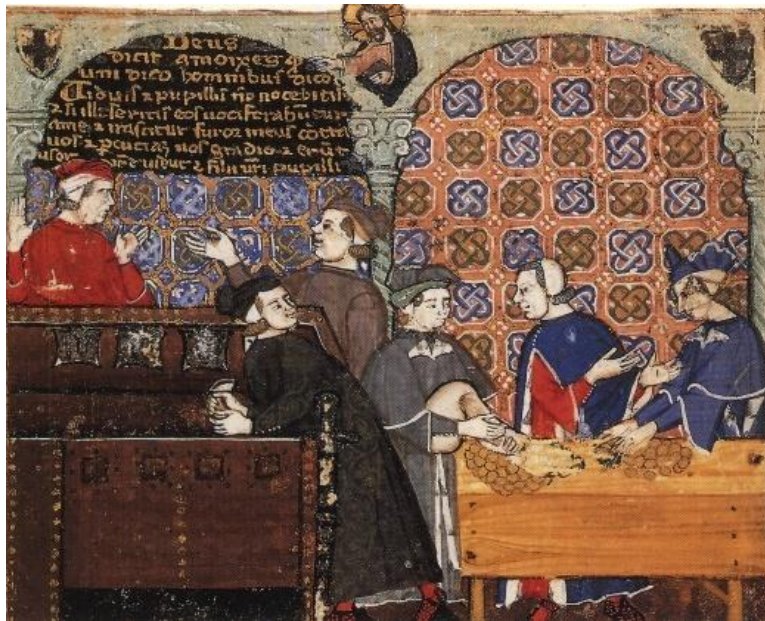 Deus
dicit amoixes q
uni dico hominibus dico
Uiduis ⁊ pupillis nō nocebitis
⁊ si illeseritis eos uociferabūtur
ame ⁊ irascitur furoz meus cōtra
uos ⁊ pcuciā uos gladio ⁊ erūt
uxores ⁊ filii uri pupilli